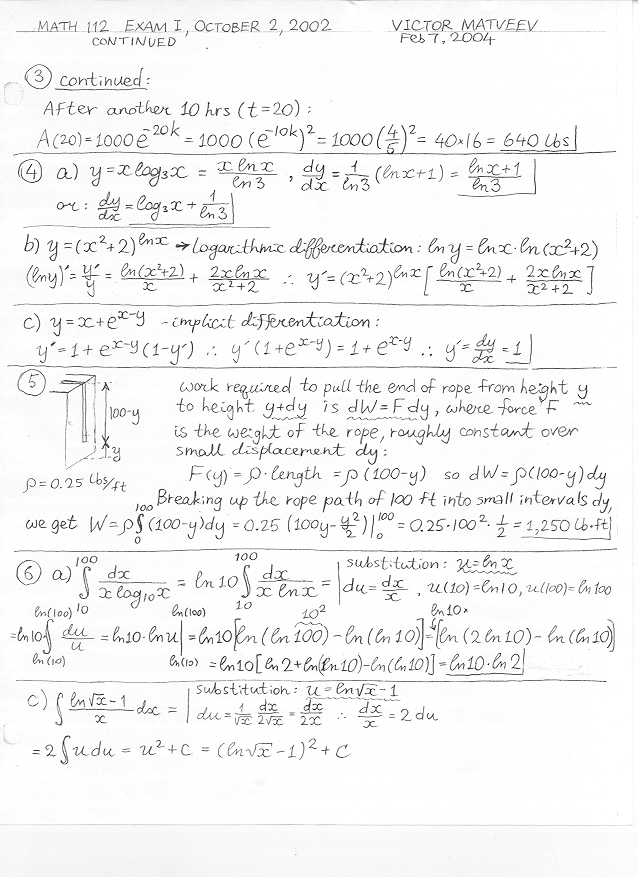 MATH 112 EXAM I, OCTOBER 2, 2002 VICTOR MATVEEV
CONTINUED Feb 7, 2004
③ continued:
After another 10 hrs (t=20):
A(20)=1000e^{-20k} = 1000 (e^{-10k})² = 1000 (4/5)² = 40×16 = 640 lbs
④ a) y=x log₃x = x ln x / ln 3 , dy/dx = 1/ln3 (ln x+1) = (ln x+1)/ln 3
or: dy/dx = log₃x + 1/ln 3
b) y=(x²+2)^{ln x} → Logarithmic differentiation: ln y = ln x · ln (x²+2)
(ln y)' = y'/y = ln(x²+2)/x + 2x ln x/(x²+2) ∴ y' = (x²+2)^{ln x} [ln(x²+2)/x + 2x ln x/(x²+2)]
c) y = x+e^{x-y} - implicit differentiation:
y' = 1+ e^{x-y}(1-y') ∴ y'(1+e^{x-y}) = 1+e^{x-y} ∴ y' = dy/dx = 1
⑤ work required to pull the end of rope from height y
100-y to height y+dy is dW=Fdy, where force F
is the weight of the rope, roughly constant over
y small displacement dy:
ρ=0.25 lbs/ft F(y) = ρ·length = ρ(100-y) so dW=ρ(100-y)dy
Breaking up the rope path of 100 ft into small intervals dy,
we get W=ρ∫₀¹⁰⁰(100-y)dy = 0.25 (100y - y²/2)|₀¹⁰⁰ = 0.25·100²·1/2 = 1,250 lb·ft
⑥ a) ∫₁₀¹⁰⁰ dx/(x log₁₀x) = ln 10 ∫₁₀¹⁰⁰ dx/(x ln x) = | substitution: u=ln x
du = dx/x , u(10)=ln10, u(100)=ln 100
=ln10 ∫_{ln(10)}^{ln(100)} du/u = ln10·ln u |_{ln(10)}^{ln(100)} = ln10[ln (ln 100) - ln (ln 10)] = [ln (2 ln 10) - ln (ln 10)]
10² ln 10×
= ln10 [ln 2+ln(ln 10)-ln(ln 10)] = ln10·ln 2
c) ∫ (ln√x -1)/x dx = | substitution: u = ln√x -1
du = 1/√x dx/2√x = dx/2x ∴ dx/x = 2 du
= 2∫u du = u²+c = (ln√x -1)² + c